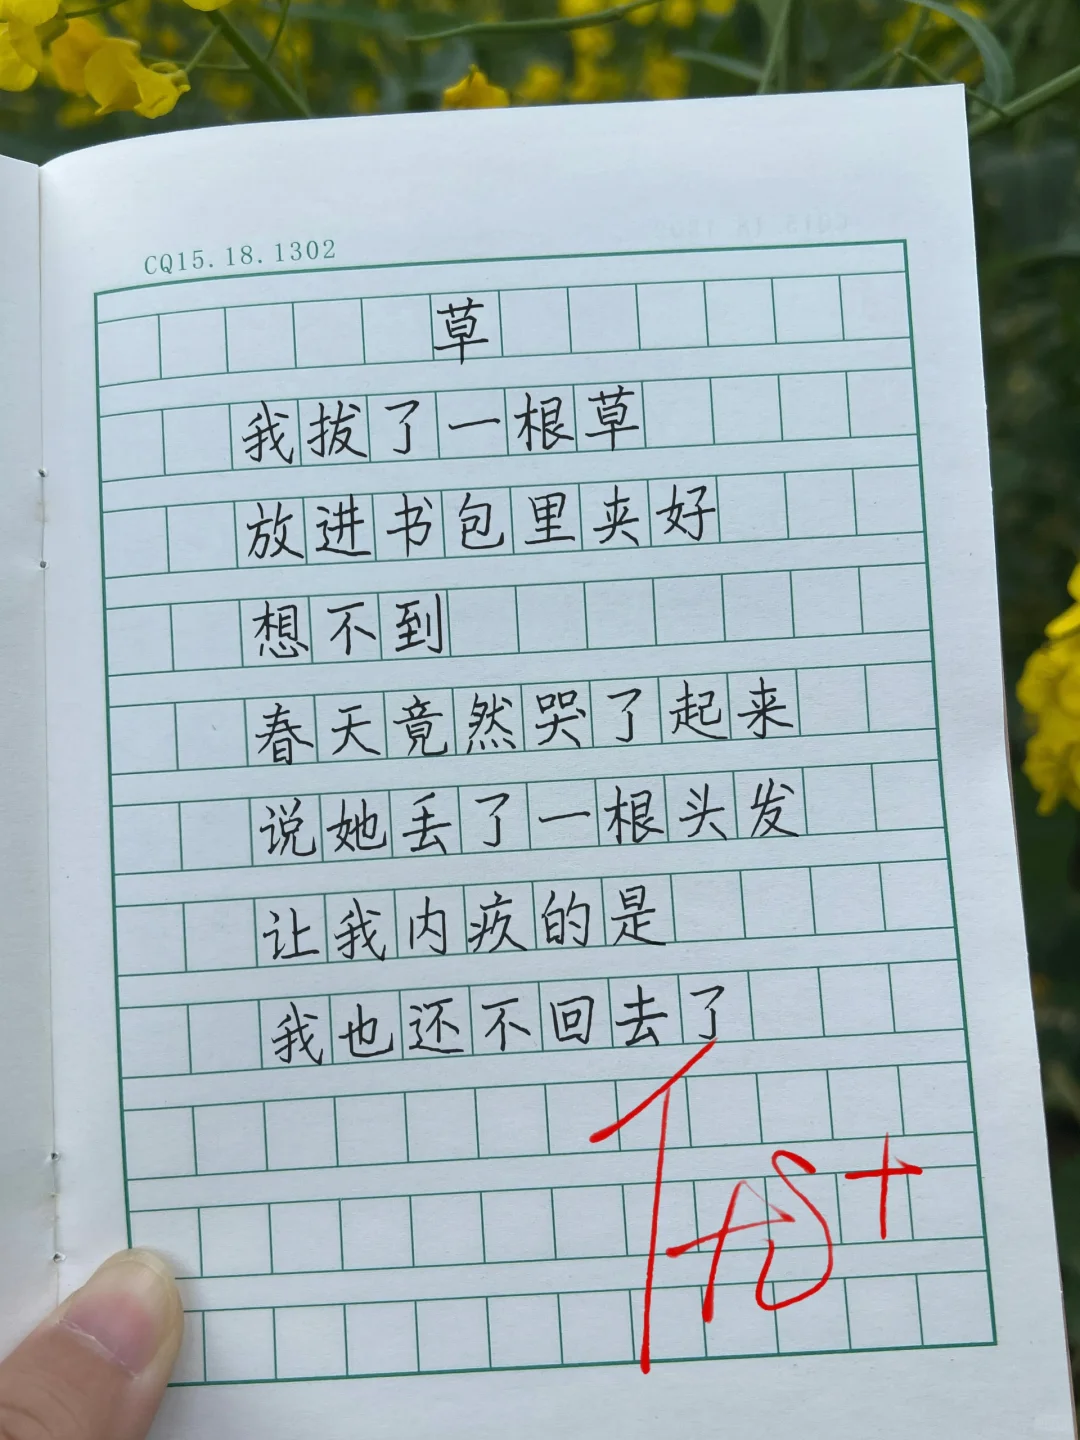 CQ15.18.1302
草
我拔了一根草
放进书包里夹好
想不到
春天竟然哭了起来
说她丢了一根头发
让我内疚的是
我也还不回去了